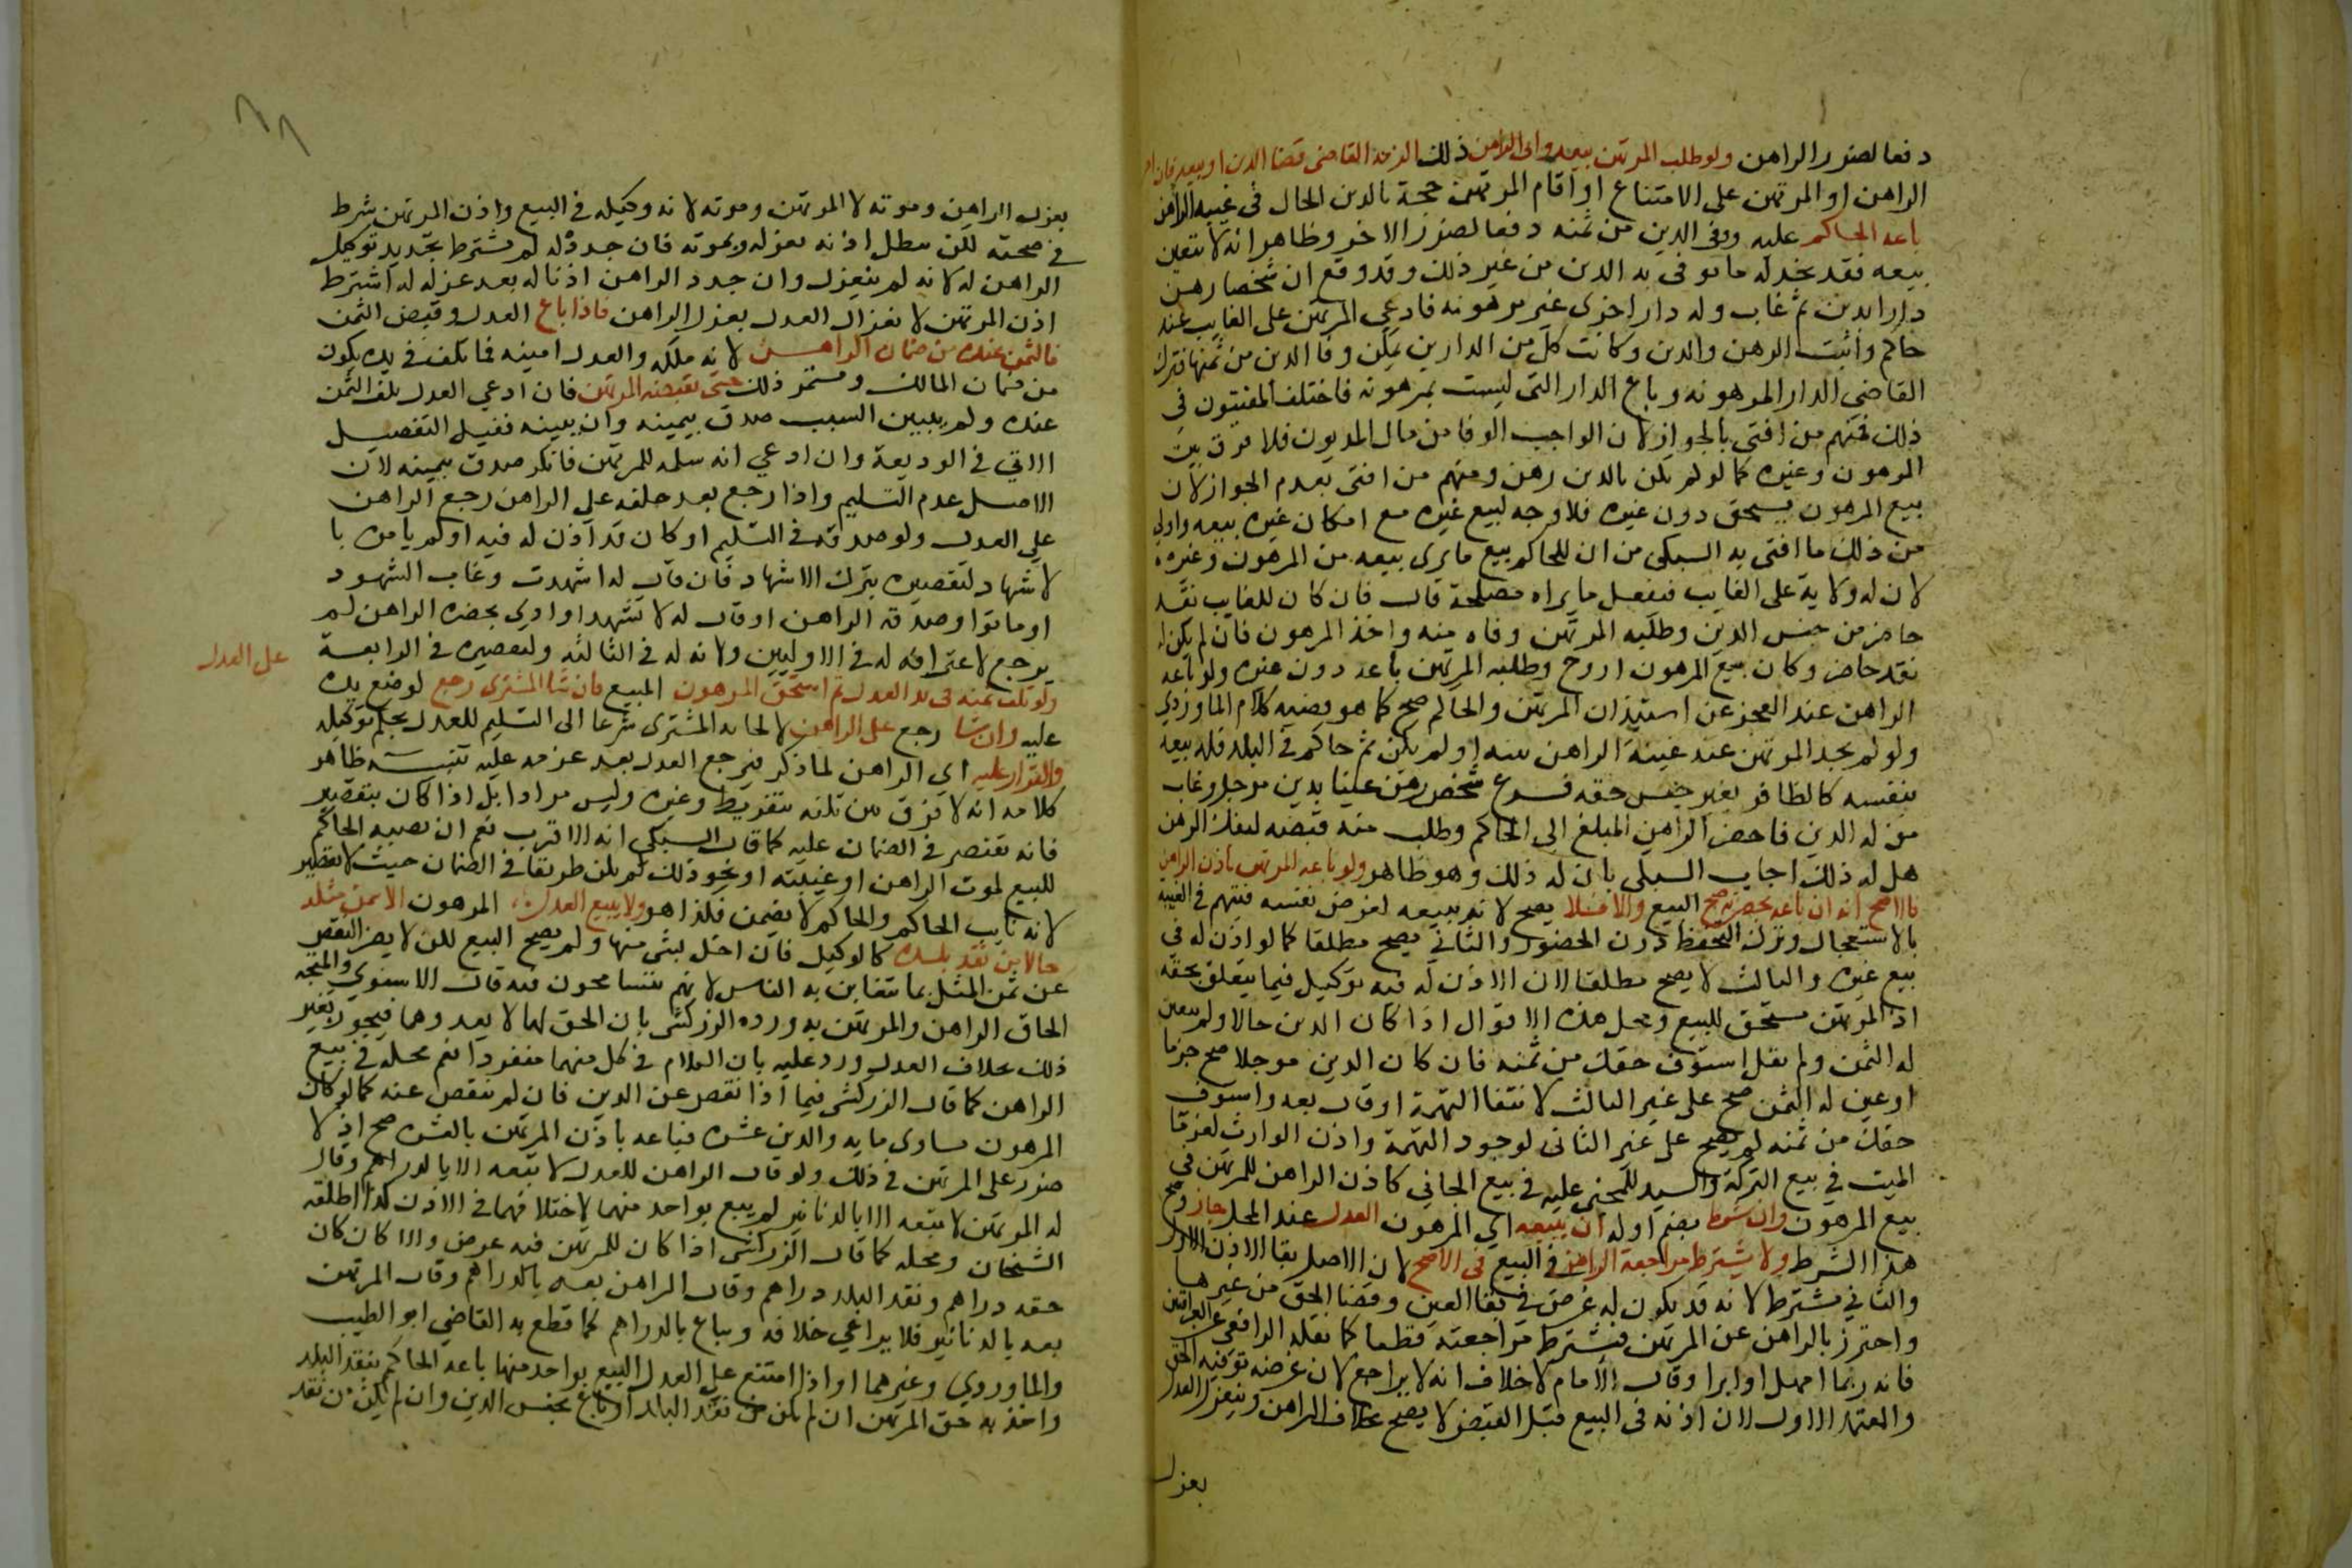 دفعا لضرر الراهن ولو طلب المرتهن بيعه وابى الراهن ذلك الزمه القاضي قضا الدين او بيعه فان اصر
الراهن او المرتهن على الامتناع او اقام المرتهن حجة بالدين الحال في غيبة الراهن
باعه الحاكم عليه ووفى الدين من ثمنه دفعا لضرر الاخر وظاهر انه لا يتعين
بيعه فقد يجد له ما يوفى به الدين من غير ذلك وقد وقع ان شخصا رهن
دارا بدين ثم غاب وله دار اخرى غير مرهونة فادعى المرتهن على الغايب عند
حاكم واثبت الرهن والدين وكانت كل من الدارين يمكن وفا الدين من ثمنها فترك
القاضي الدار المرهونة وباع الدار التي ليست بمرهونة فاختلف المفتيون في
ذلك فمنهم من افتى بالجواز لان الواجب الوفا من مال المديون فلا فرق بين
المرهون وغيره كما لو لم يكن بالدين رهن ومنهم من افتى بعدم الجواز لان
بيع المرهون يستحق دون غيره فلا وجه لبيع غيره مع امكان غيره بيعه واولى
من ذلك ما افتى به السبكي من ان للحاكم بيع ما يرى بيعه من المرهون وغيره
لان له ولاية على الغايب فيفعل ما يراه مصلحة قال فان كان للغايب نقد
حاضر من جنس الدين وطلبه المرتهن وفاه منه واخذ المرهون فان لم يكن له
نقد حاضر وكان بيع المرهون اروح وطلبه المرتهن باعه دون غيره ولو باعه
الراهن عند العجز عن استيذان المرتهن والحاكم صح كما هو قضية كلام الماوردي
ولو لم يجد المرتهن عند غيبة الراهن بينة او لم يكن ثم حاكم في البلد فله بيعه
بنفسه كالظافر بغير جنس حقه فرع شخص رهن عينا بدين موجل وغاب
من له الدين فاحضر الراهن المبلغ الى الحاكم وطلب منه قبضه ليفك الرهن
هل له ذلك اجاب السبكي بان له ذلك وهو ظاهر ولو باعه المرتهن باذن الراهن
فالاصح انه ان باعه بحضرته صح البيع والا فلا يصح لانه يبيعه لغرض نفسه فيتهم في الغيبة
بالاستعجال وترك التحفظ دون الحضور والثاني يصح مطلقا كما لو اذن له في
بيع غيره والثالث لا يصح مطلقا لان الاذن له فيه توكيل فيما يتعلق بحقه
اذ المرتهن مستحق للبيع ومحل هذه الاقوال اذا كان الدين حالا ولم يعين
له الثمن ولم يقل استوف حقك من ثمنه فان كان الدين موجلا صح جزما
او عين له الثمن صح على غير الثالث لانتفا التهمة او قال بعه واستوف
حقك من ثمنه لم يصح على غير الثاني لوجود التهمة واذن الوارث لغرما
الميت في بيع التركة والسيد للمجنى عليه في بيع الجاني كاذن الراهن للمرتهن في
بيع المرهون وان شرط بضم اوله ان يبيعه اي المرهون العدل عند المحل جاز وصح
هذا الشرط ولا يشترط مراجعة الراهن في البيع في الاصح لان الاصل بقا الاذن الاول
والثاني يشترط لانه قد يكون له غرض في بقا العين وقضا الحق من غيرها
واحترز بالراهن عن المرتهن فيشترط مراجعته قطعا كما نقله الرافعي عن العراقيين
فانه ربما امهل او ابرا وقال الامام لا خلاف انه لا يراجع لان غرضه توفية الحق
والمعتمد الاول لان اذنه في البيع قبل القبض لا يصح بخلاف الراهن وينعزل العدل
بعزل
بعزل الراهن وموته لا المرتهن وموته لانه وكيله في البيع واذن المرتهن شرط
في صحته لكن يبطل اذنه بعزله وبموته فان جدده له لم يشترط تجديد توكيل
الراهن له لانه لم ينعزل وان جدد الراهن اذنا له بعد عزله له اشترط
اذن المرتهن لانعزال العدل بعزل الراهن فاذا باع العدل وقبض الثمن
فالثمن عنده من ضمان الراهن لانه ملكه والعدل امينه فما تلف في يده يكون
من ضمان المالك ويستمر ذلك حتى يقبضه المرتهن فان ادعي العدل تلف الثمن
عنده ولم يبين السبب صدق بيمينه وان بينه ففيه التفصيل
الاتي في الوديعة وان ادعي انه سلمه للمرتهن فانكر صدق بيمينه لان
الاصل عدم التسليم واذا رجع بعد حلفه علي الراهن رجع الراهن
علي العدل ولو صدقه في التسليم او كان قد اذن له فيه اولم يامره با
لاشهاد لتقصيره بترك الاشهاد فان قال له اشهدت وغاب الشهود
او ماتوا وصدقه الراهن او قال له لا تشهد او ادي بحضرة الراهن لم
يرجع لاعترافه له في الاوليين ولاذنه له في الثالثة ولتقصيره في الرابعة
ولو تلف ثمنه في يد العدل ثم استحق المرهون المبيع فان شا المشتري رجع لوضع يده
على العدل
عليه وان شا رجع على الراهن لالجا به المشتري شرعا الى التسليم للعدل بحكم توكيله
والقرار عليه اي الراهن لما ذكر فيرجع العدل بعد غرمه عليه تنبيه ظاهر
كلامه انه لا فرق بين تلفه بتفريط وغيره وليس مرادا بل اذا كان بتقصير
فانه يقتصر في الضمان عليه كما قال السبكي انه الاقرب نعم ان نصبه الحاكم
للبيع لموت الراهن او غيبته او نحو ذلك لم يكن طريقا في الضمان حيث لا تقصير
لانه نايب الحاكم والحاكم لا يضمن فكذا هو ولا يبيع العدل المرهون الا بثمن مثله
حالا من نقد بلده كالوكيل فان اخل بشي منها لم يصح البيع لكن لا يضر النقص
عن ثمن المثل بما يتغابن به الناس لانهم يتسامحون فيه قال الاسنوي والمتجه
الحاق الراهن والمرتهن به ورده الزركشي بان الحق لهما لا يعدوهما فيجوز بغير
ذلك بخلاف العدل ورد عليه بان الكلام في كل منهما منفردا نعم محله في بيع
الراهن كما قال الزركشي فيما اذا نقص عن الدين فان لم ينقص عنه كما لو كان
المرهون يساوي مايه والدين عشره فباعه باذن المرتهن بالعشره صح اذ لا
ضرر على المرتهن في ذلك ولو قال الراهن للعدل لا تبعه الا بالدراهم وقال
له المرتهن لا تبعه الا بالدنانير لم يبع بواحد منهما لاختلافهما في الاذن كذا اطلقه
الشيخان ومحله كما قال الزركشي اذا كان للمرتهن فيه غرض والا كان كان
حقه دراهم ونقد البلد دراهم وقال الراهن بعه بالدراهم وقال المرتهن
بعه بالدنانير فلا يراعي خلافه ويباع بالدراهم كما قطع به القاضي ابو الطيب
والماوردي وغيرهما او اذا امتنع على العدل البيع بواحد منهما باعه الحاكم بنقد البلد
واخذ به حق المرتهن ان لم يكن من نقد البلد او باع بجنس الدين وان لم يكن من نقد